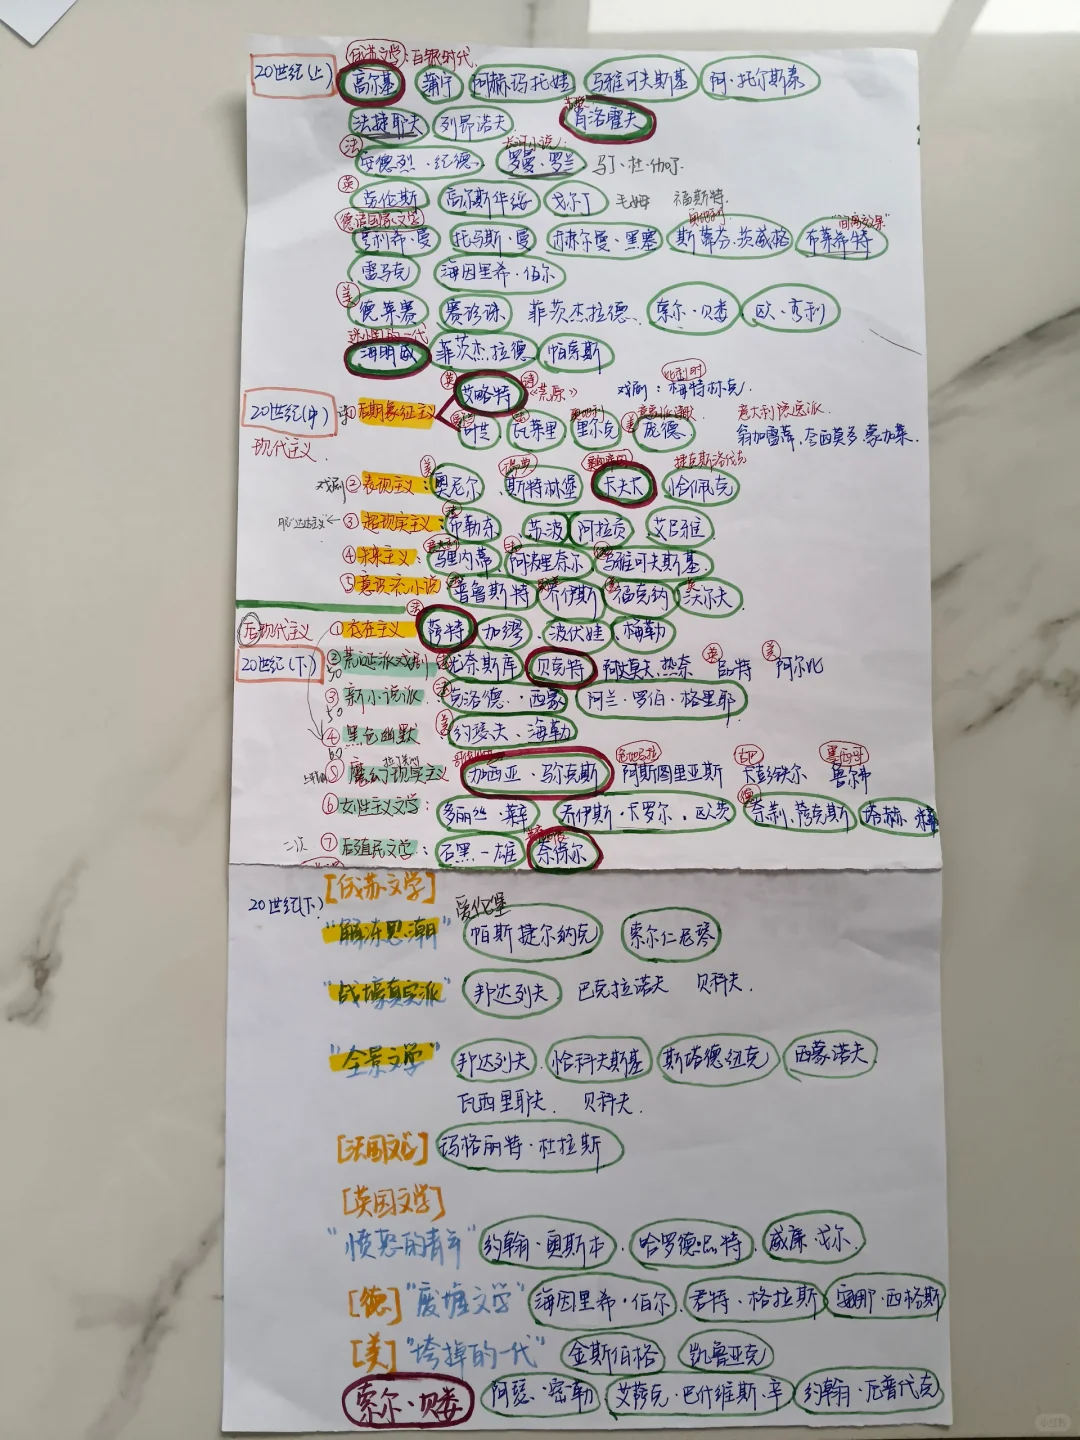 俄苏文学:白银时代
20世纪(上) 高尔基 蒲宁 阿赫玛托娃 马雅可夫斯基 阿·托尔斯泰
法捷耶夫 列昂诺夫 肖洛霍夫
法 长河小说
安德烈·纪德、罗曼·罗兰、马丁·杜·伽尔
英 劳伦斯 高尔斯华绥 戈尔丁 毛姆 福斯特.
德语国家文学 奥地利 "间离效果"
亨利希·曼 托马斯·曼 赫尔曼·黑塞 斯蒂芬·茨威格 布莱希特
雷马克 海因里希·伯尔
美 德莱赛 赛珍珠、菲茨杰拉德、索尔·贝娄 欧·亨利
迷惘的一代
海明威 菲茨杰拉德 帕索斯
英 艾略特 诗《荒原》 戏剧:梅特林克. 比利时
20世纪(中) ①后期象征主义
叶芝、瓦莱里 里尔克 庞德. 奥地利 美 意象派诗歌 意大利隐逸派
翁加雷蒂,夸西莫多,蒙加莱
现代主义.
戏剧 ②表现主义:美 奥尼尔、瑞典 斯特林堡 卡夫卡 捷克斯洛伐克 恰佩克
③超现实主义:法 布勒东、苏波 阿拉贡 艾吕雅
④未来主义:意大利 马里内蒂、法 阿波里奈尔、马雅可夫斯基.
⑤意识流小说 普鲁斯特 乔伊斯 福克纳 沃尔夫.
后现代主义 ①存在主义 法 萨特 加缪、波伏娃、梅勒
20世纪(下) ②荒诞派戏剧 尤奈斯库 贝克特 阿达莫夫.热奈 英 品特 美 阿尔比
50
③新小说派 法 克洛德·西蒙 阿兰·罗伯·格里耶
50
④黑色幽默 美 约瑟夫·海勒
60
⑤魔幻现实主义 加西亚·马尔克斯 危地马拉 阿斯图里亚斯 古巴 卡彭铁尔 墨西哥 鲁尔弗
⑥女性主义文学: 多丽丝·莱辛 乔伊斯·卡罗尔·欧茨 德 奈莉.萨克斯 塔赫·米勒
二次 ⑦后殖民文学: 石黑一雄 奈保尔
[俄苏文学]
20世纪(下) 爱伦堡
"解冻思潮" 帕斯捷尔纳克 索尔仁尼琴
"战壕真实派" 邦达列夫 巴克拉诺夫 贝科夫.
"全景文学" 邦达列夫 恰科夫斯基 斯塔德纽克 西蒙诺夫
瓦西里耶夫、贝科夫.
[法国文学] 玛格丽特·杜拉斯
[英国文学]
"愤怒的青年" 约翰·奥斯本、哈罗德·品特、威廉·戈尔.
[德]"废墟文学" 海因里希·伯尔、君特·格拉斯 安娜·西格斯
[美]"垮掉的一代" 金斯伯格 凯鲁亚克
索尔·贝娄 阿瑟·密勒 艾萨克·巴什维斯·辛 约翰·厄普代克